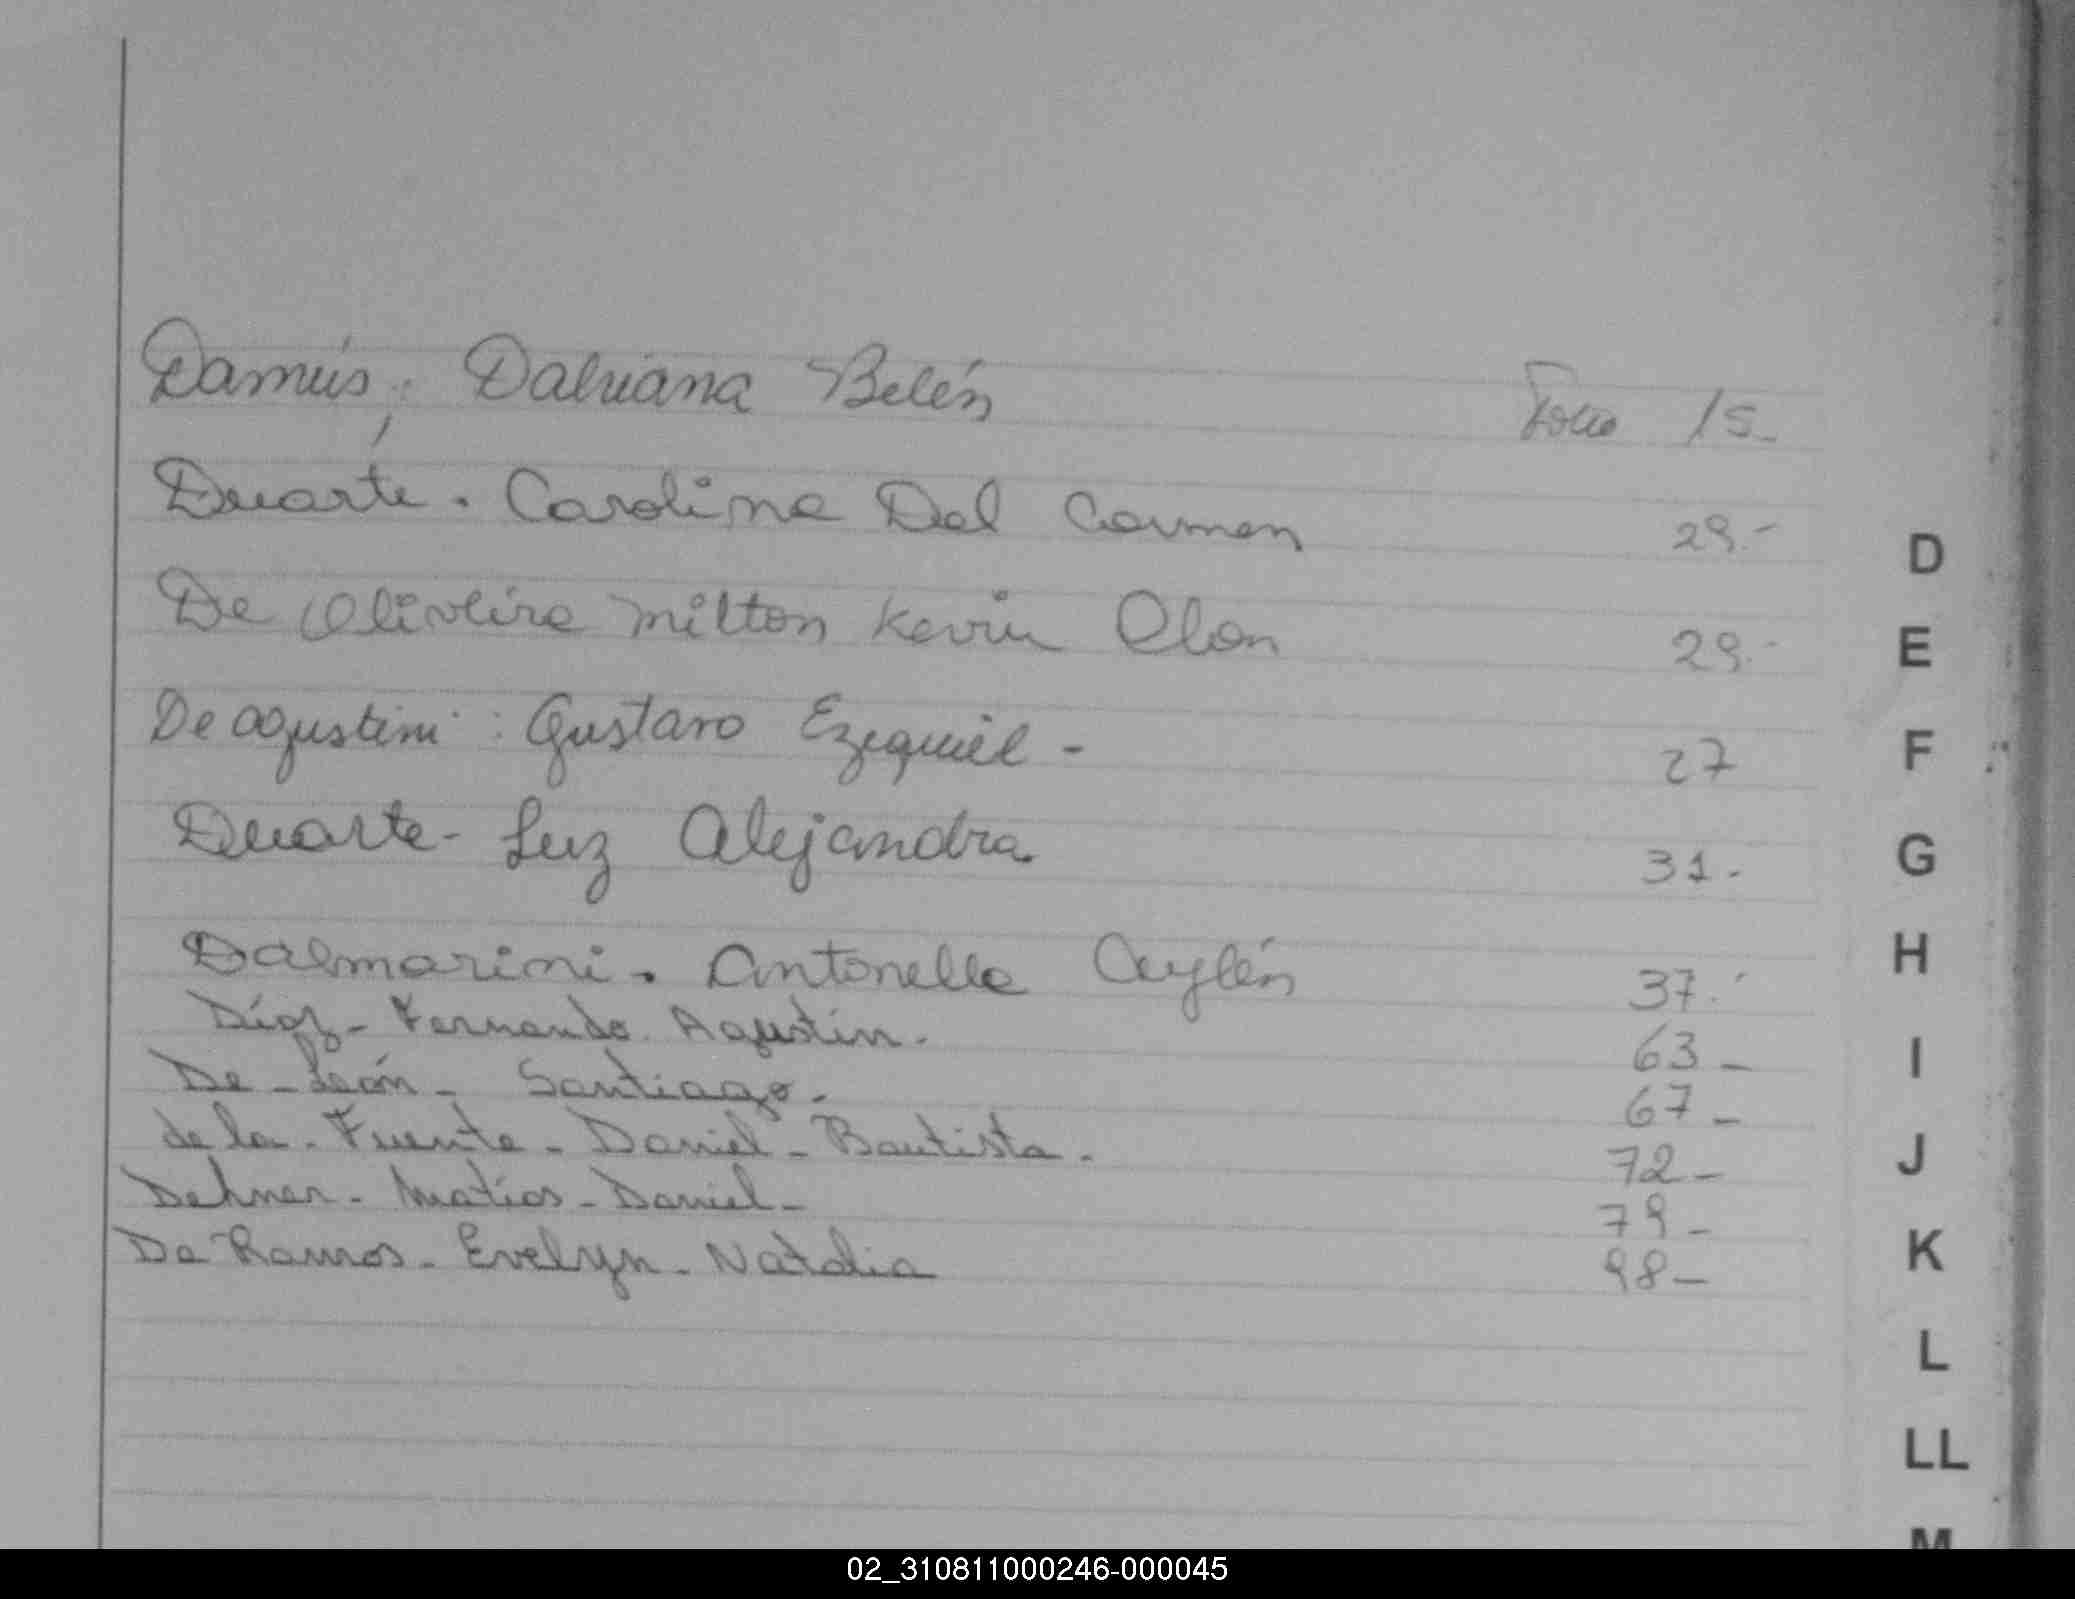 Damús, Daluana Belén Folio 15-
Duarte. Carolina Del Carmen 29.-
De Oliveira Milton Kevin Elon 29.-
De agustini: Gustavo Ezequiel - 27
Duarte - Luz Alejandra. 31.-
Dalmarini. Antonella Aylén 37.-
Díaz - Fernando Agustín. 63 -
De - León - Santiago. 67 -
de la - Fuente - Daniel - Bautista. 72 -
Dehner - Matías - Daniel - 79 -
Da Ramos - Evelyn - Natalia 98 -
D
E
F
G
H
I
J
K
L
LL
M
02_310811000246-000045